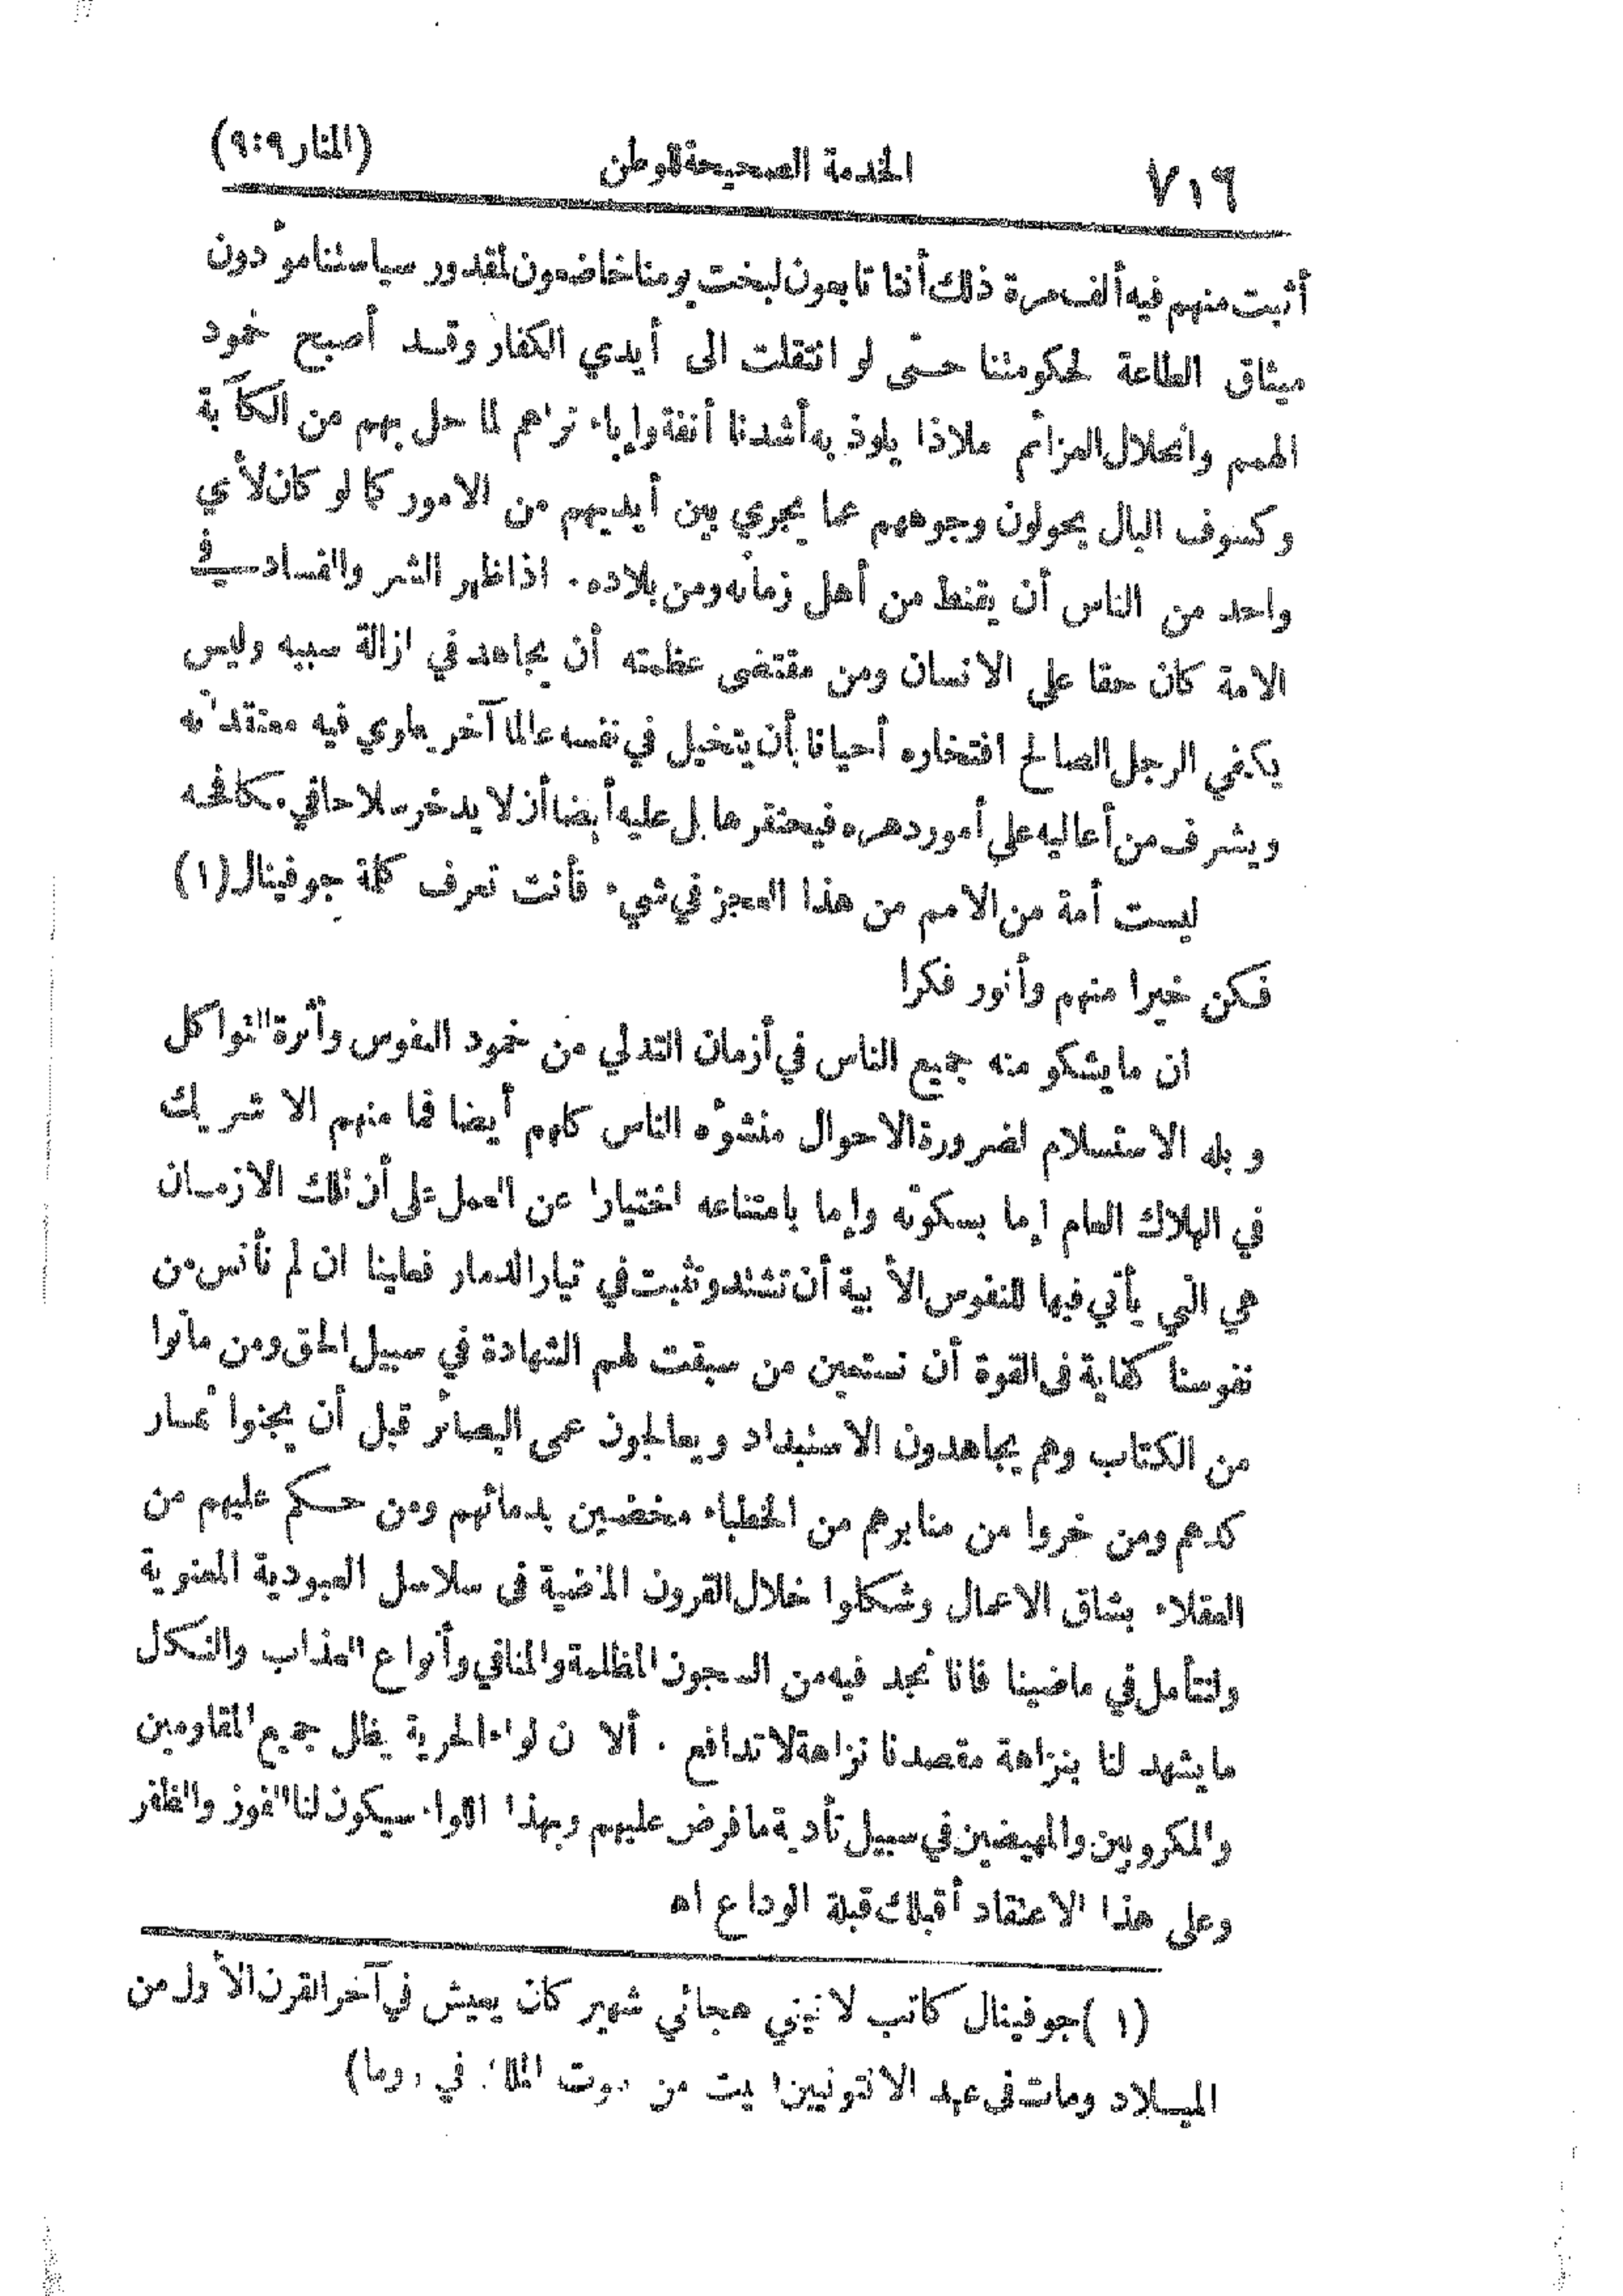 ٧١٦ الخدمة الصحيحة للوطن (المنار ٩:٩)
أثبت منهم فيه ألف مرة ذلك أننا تابعون لبخت يومنا خاضعون لمقدور سياستنا مؤدون
ميثاق الطاعة لحكومتنا حتى لو انتقلت الى أيدي الكفار وقد أصبح خمود
الهمم وانحلال العزائم ملاذا يلوذ به أشدنا أنفة وإباء تراهم لما حل بهم من الكآبة
وكسوف البال يحولون وجوههم عما يجري بين أيديهم من الامور كما لو كان لأي
واحد من الناس أن يقنط من أهل زمانه ومن بلاده. اذا ظهر الشر والفساد في
الامة كان حقا على الانسان ومن مقتضى عظمته أن يجاهد في ازالة سببه وليس
يكفي الرجل الصالح افتخاره أحيانا بأن يتخيل في نفسه عالما آخر يطوي فيه معتقداته
ويشرف من أعاليه على أمور دهره فيحتقرها بل عليه أيضا أن لا يدخر سلاحا في مكافحه
ليست أمة من الامم من هذا العجز في شيء فأنت تعرف كلمة جوفينال (١)
فكن خيرا منهم وأنور فكرا
ان ما يشكو منه جميع الناس في أزمان التدلي من خمود النفوس وأثرة التواكل
وبله الاستسلام لضرورة الاحوال منشؤه الناس كلهم أيضا فما منهم الا شريك
في الهلاك العام إما بسكوته وإما بامتناعه اختيارا عن العمل على أن تلك الازمان
هي التي يأتي فيها للنفوس الأبية أن تشتد وتثبت في تيار الدمار فعلينا ان لم نأنس من
نفوسنا كفاية في القوة أن نستعين من سبقت لهم الشهادة في سبيل الحق ومن ماتوا
من الكتاب وهم يجاهدون الاستبداد ويعالجون عمى البصائر قبل أن يجنوا ثمار
كدهم ومن خروا من منابرهم من الخطباء مخضبين بدمائهم ومن حكم عليهم من
العقلاء بشاق الاعمال وشكلوا خلال القرون الماضية في سلاسل العبودية المعنوية
ولنتأمل في ماضينا فانا نجد فيه من السجون المظلمة والمنافي وأنواع العذاب والنكل
ما يشهد لنا بنزاهة مقصدنا نزاهة لا تدافع. ألا ن لواء الحرية يظل جميع المقاومين
والمكروبين والمهيضين في سبيل تأدية ما فرض عليهم وبهذا اللواء سيكون لنا الفوز والظفر
وعلى هذا الاعتقاد أقبلك قبلة الوداع اه
(١) جوفينال كاتب لاتيني هجائي شهير كان يعيش في آخر القرن الأول من
الميلاد ومات في عهد الانتونيين بيت من بيوت الملك في روما)